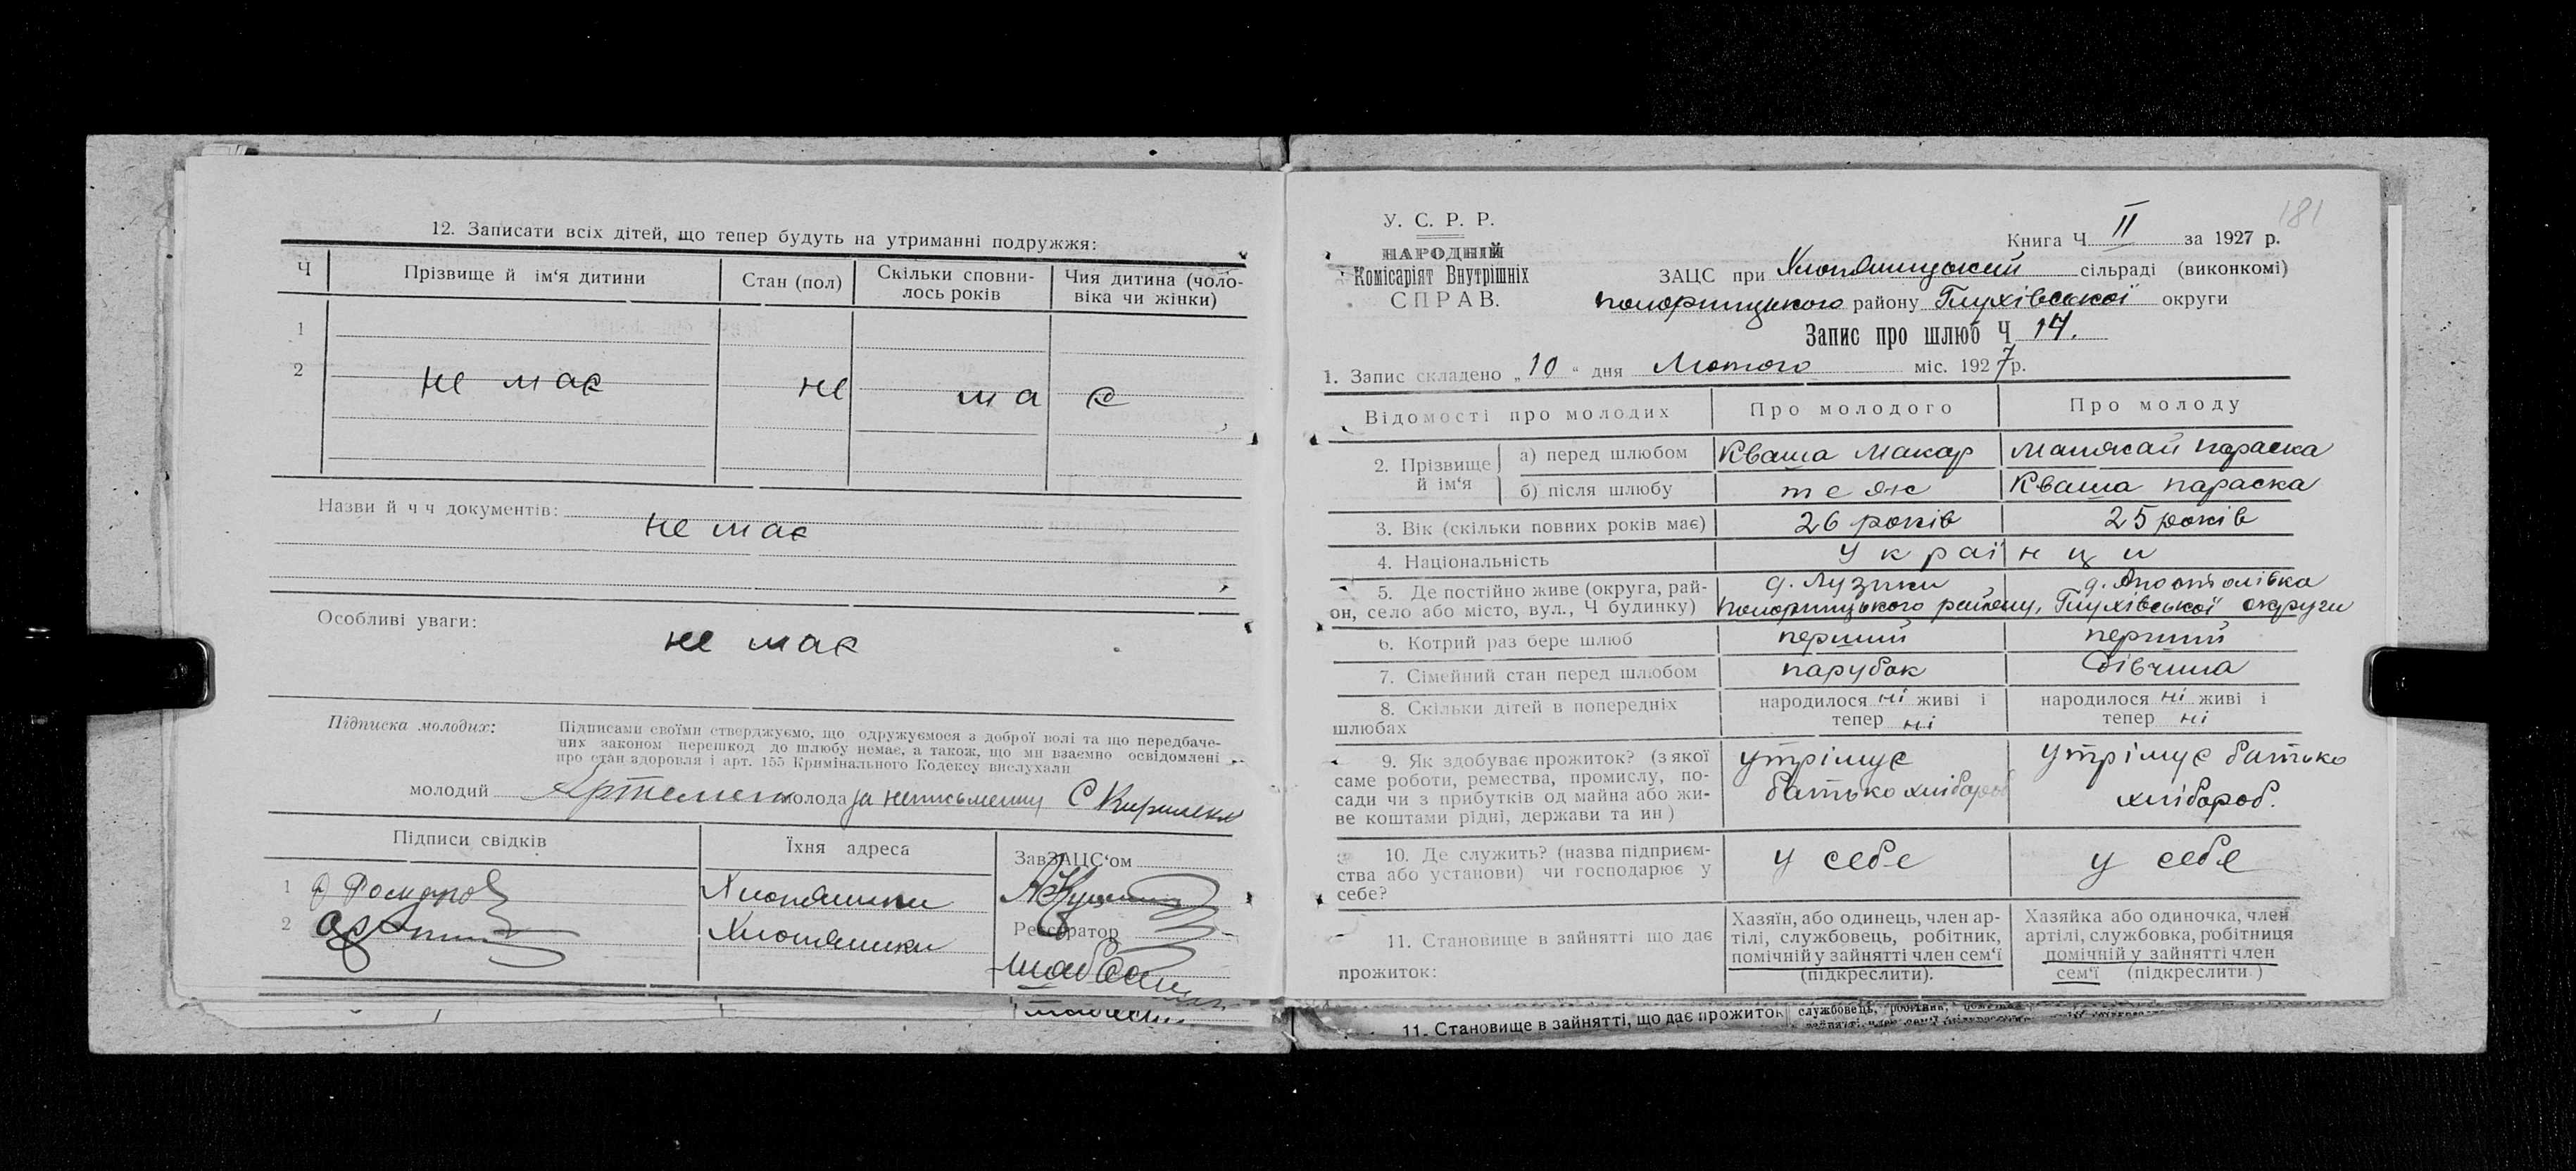 12. Записати всіх дітей, що тепер будуть на утриманні подружжя:
Ч Прізвище й ім'я дитини Стан (пол) Скільки сповни-лось років Чия дитина (чоло-віка чи жінки)
1
2 не має не ма є
Назви й ч ч документів: не має
Особливі уваги: не має
Підписка молодих: Підписами своїми стверджуємо, що одружуємося з доброї волі та що передбаче-
них законом перешкод до шлюбу немає, а також, що ми взаємно освідомлені
про стан здоровля і арт. 155 Кримінального Кодексу вислухали
молодий молода за неписьменну С Кириленко
Підписи свідків Їхня адреса ЗавЗАЦС'ом
1 Хлопяники
2 Хлопяники
Реєстратор
У. С. Р. Р.
НАРОДНІЙ
Комісаріят Внутрішніх
СПРАВ.
181
Книга Ч II за 1927 р.
ЗАЦС при Хлопяницький сільраді (виконкомі)
Понорницького району Глухівської округи
Запис про шлюб Ч 14.
1. Запис складено „10“ дня Лютого міс. 1927 р.
Відомості про молодих Про молодого Про молоду
2. Прізвище й ім'я а) перед шлюбом Кваша Макар Параска
б) після шлюбу теж Кваша Параска
3. Вік (скільки повних років має) 26 років 25 років
4. Національність Українци
5. Де постійно живе (округа, рай- д. Лузики д. Апостолівка
он, село або місто, вул., Ч будинку) Понорницького району, Глухівської округи
6. Котрий раз бере шлюб перший перший
7. Сімейний стан перед шлюбом парубок дівчина
8. Скільки дітей в попередніх народилося ні живі і народилося ні живі і
шлюбах тепер ні тепер ні
9. Як здобуває прожиток? (з якої утрімує утрімує батько
саме роботи, ремества, промислу, по- батько хлібороб хлібороб.
сади чи з прибутків од майна або жи-
ве коштами рідні, держави та ин)
10. Де служить? (назва підприєм- у себе у себе
ства або установи) чи господарює у
себе?
11. Становище в зайнятті що дає
прожиток:
Хазяїн, або одинець, член ар-
тілі, службовець, робітник,
помічній у зайнятті член сем'ї
(підкреслити).
Хазяйка або одиночка, член
артілі, службовка, робітниця
помічній у зайнятті член
сем'ї (підкреслити)
11. Становище в зайнятті, що дає прожиток службовець, робітник,